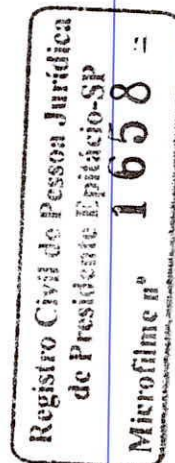 Registro Civil de Pessoa Jurídica
de Presidente Epitácio-SP
Microfilme nº 1658 =